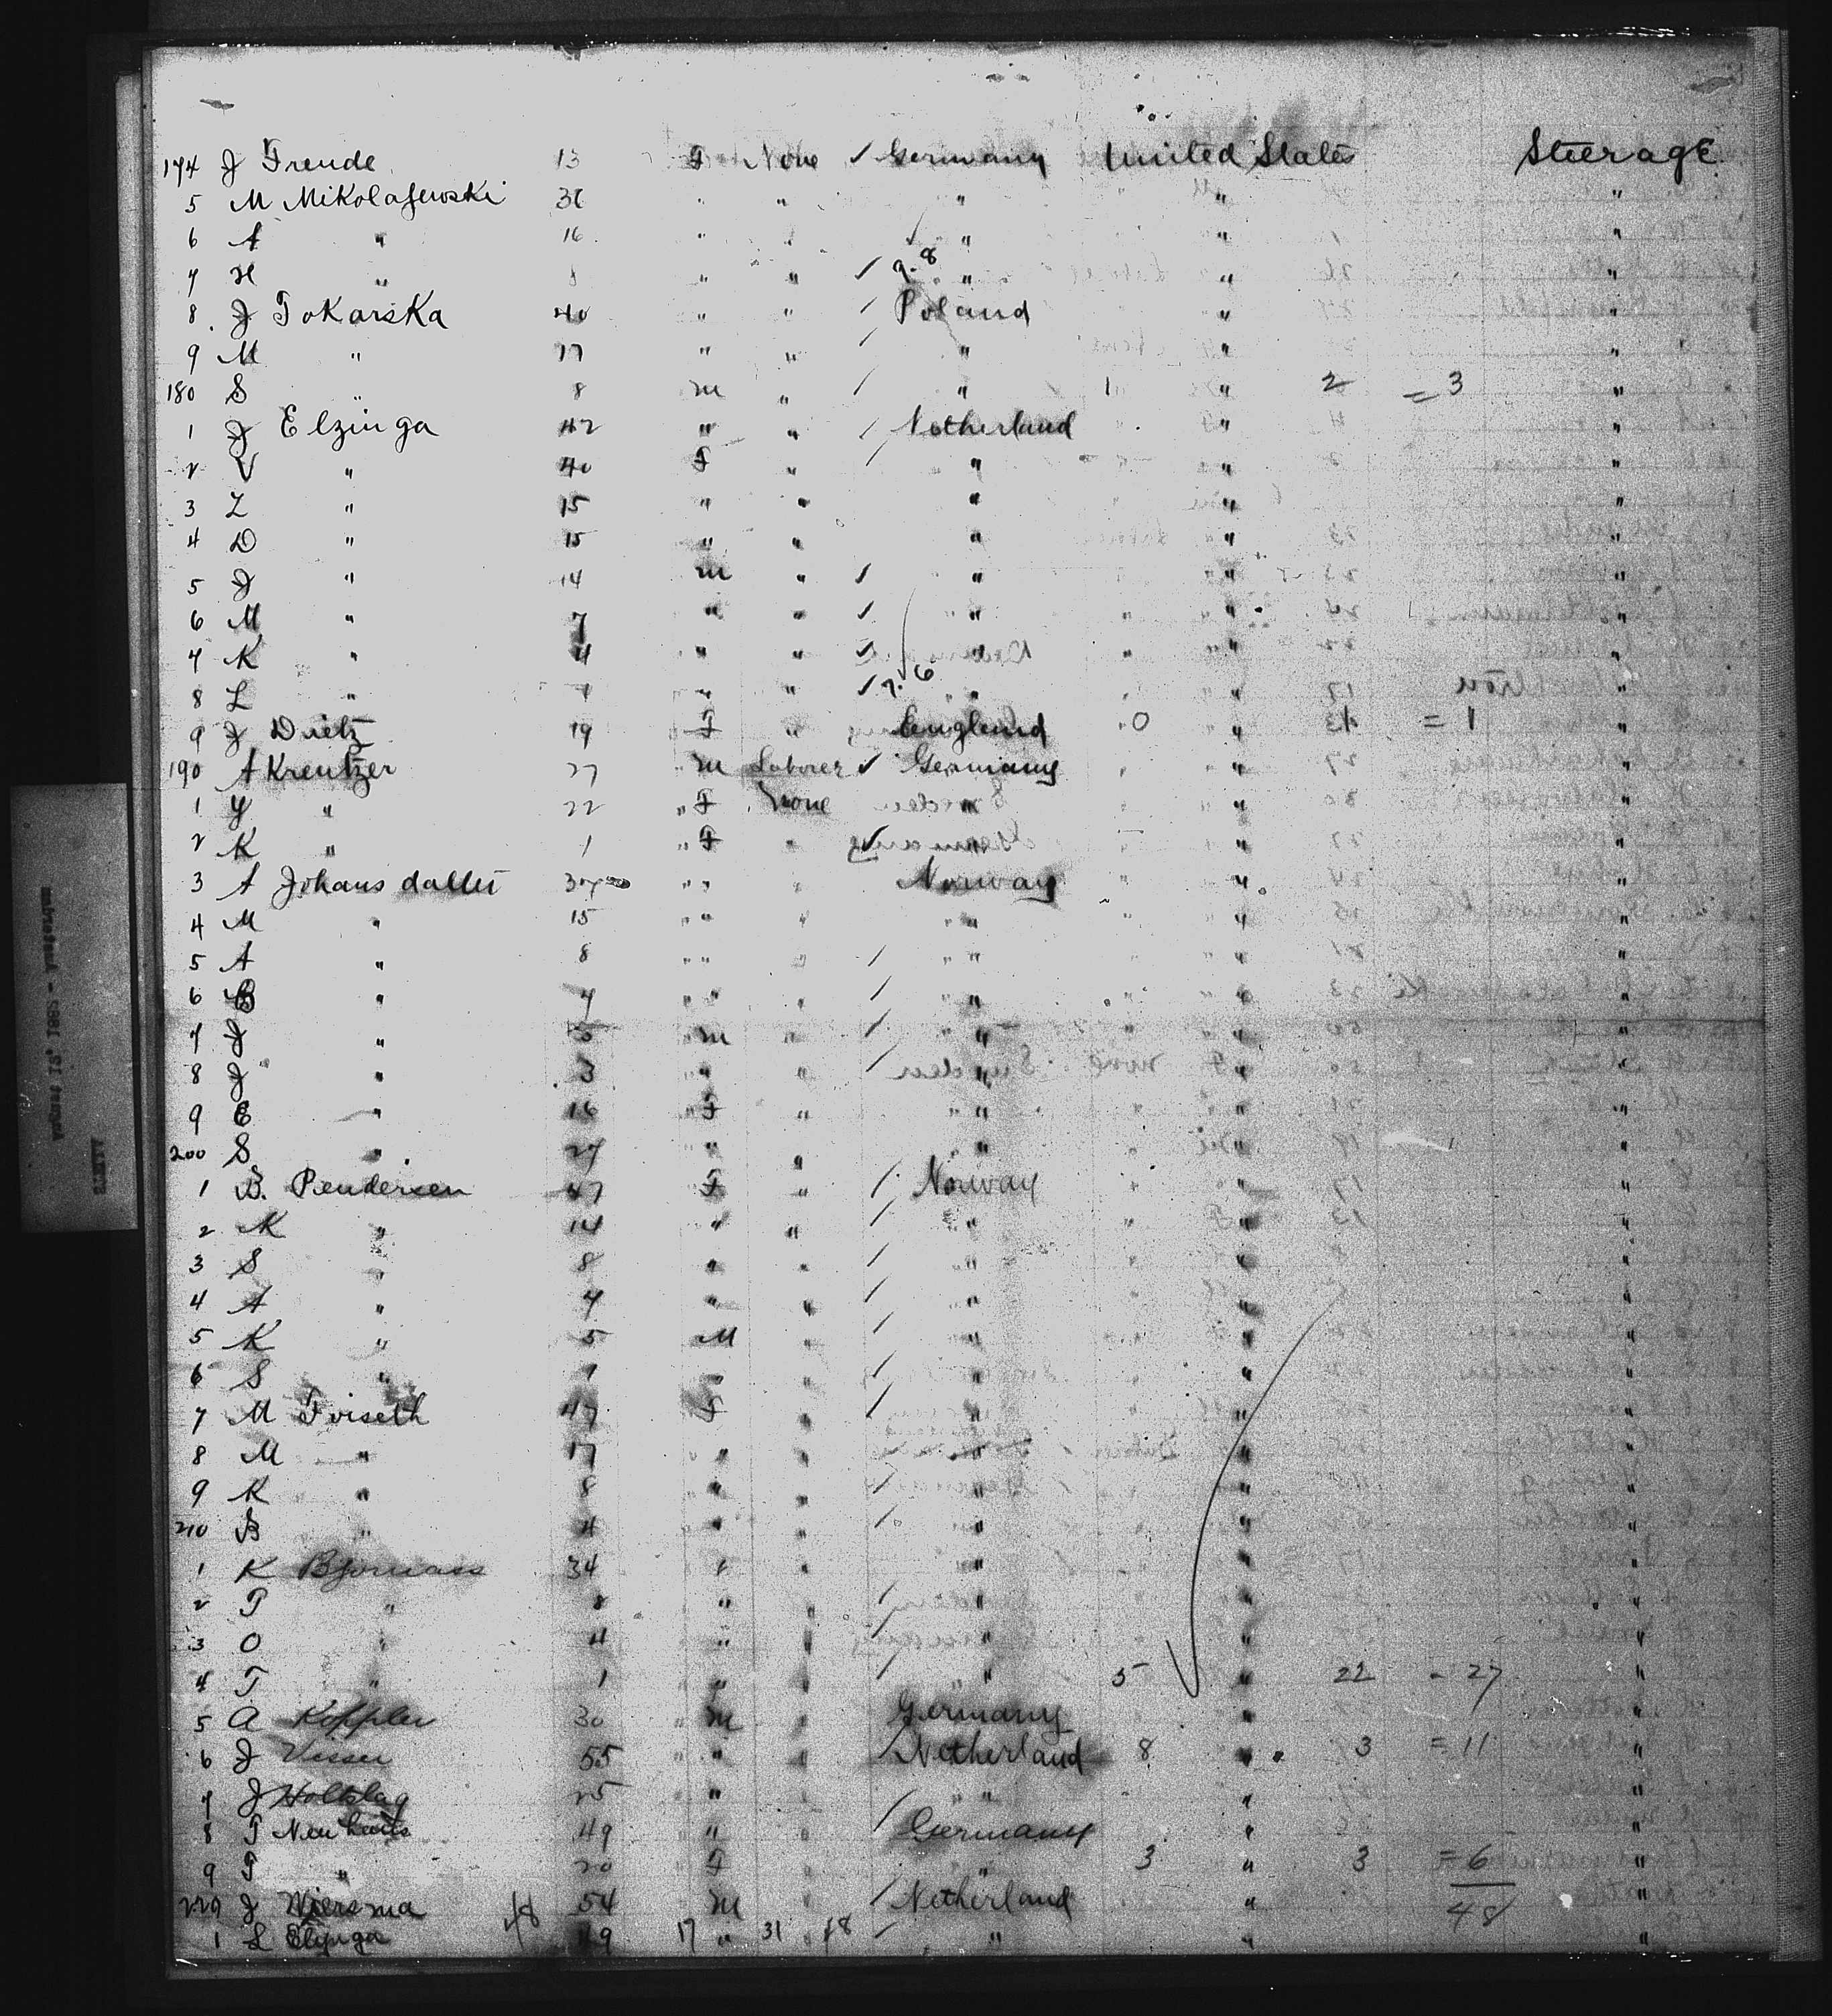 174 J Freude 13 F None ✓ Germany United States Steerage
5 M Mikolajewski 36 " " " " "
6 A " 16 " " " " "
7 H " " " ✓ 9-8 " " "
8 J Tokarska 40 " " / Poland " "
9 M " 17 " " / " " "
180 S " 8 m " / " 1 " 2 = 3 "
1 J Elzinga 42 " " / Netherland " "
2 V " 40 F " / " " "
3 L " 15 " " " " "
4 D " 15 " " " " "
5 J " 14 m " ✓ " " "
6 M " 7 " " ✓ " " "
7 K " 4 " " ✓ " " "
8 L " " " ✓ 7-6 " " "
9 J Dietz 19 F " England 0 " 1 = 1 "
190 A Kreutzer 27 m Laborer ✓ Germany " "
1 Y " 22 " F None " " "
2 K " 1 " F " ✓ " " "
3 A Johans datter " " " Norway " "
4 M " 15 " " " " " "
5 A " 8 " " " / " " "
6 B " 7 " " " / " " "
7 J " 5 " m " / " " "
8 J " 3 " " " / " " "
9 E " 16 " F " " " "
200 S " 27 " " " " "
1 B. Pendersen 47 F " / Norway " "
2 K " 14 " " / " " "
3 S " 8 " " / " " "
4 A " 7 " " / " " "
5 K " 5 M " / " " "
6 S " 1 " " / " " "
7 M Foiseth 47 F " / " " "
8 M " 17 " " " " "
9 K " 8 " " / " " "
210 B " 4 " " / " " "
1 K 34 " " " " "
2 P " 8 " " / " " "
3 O " 4 " " / " " "
4 T " 1 " " / " 5 " 22 - 27 "
5 A Koppler 30 " m " Germany " "
6 J Visser 55 " " / Netherland 8 " 3 = 11 "
7 J Holtslag 25 " " " " "
8 T 49 " " / Germany " "
9 T " 20 F " " 3 " 3 = 6 "
220 J Wiersma 48 54 m " / Netherland " 48 "
1 L 49 17 " 31 48 / " " "